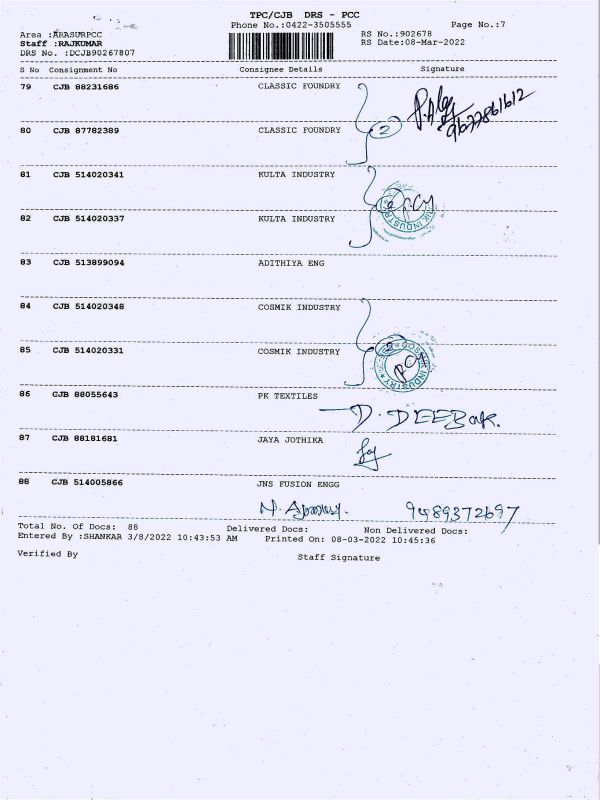 TPC/CJB DRS - PCC
Phone No.:0422-3505555 Page No.:7
Area :ARASURPCC RS No.:902678
Staff :RAJKUMAR RS Date:08-Mar-2022
DRS No. :DCJB90267807
S No Consignment No Consignee Details Signature
79 CJB 88231686 CLASSIC FOUNDRY
9677861612
80 CJB 87782389 CLASSIC FOUNDRY 2
81 CJB 514020341 KULTA INDUSTRY
82 CJB 514020337 KULTA INDUSTRY
83 CJB 513899094 ADITHIYA ENG
84 CJB 514020348 COSMIK INDUSTRY
85 CJB 514020331 COSMIK INDUSTRY 2 COSMIK INDUSTRY
86 CJB 88055643 PK TEXTILES
D. DEEBAK.
87 CJB 88181681 JAYA JOTHIKA
88 CJB 514005866 JNS FUSION ENGG
9489372697
Total No. Of Docs: 88 Delivered Docs: Non Delivered Docs:
Entered By :SHANKAR 3/8/2022 10:43:53 AM Printed On: 08-03-2022 10:45:36
Verified By Staff Signature